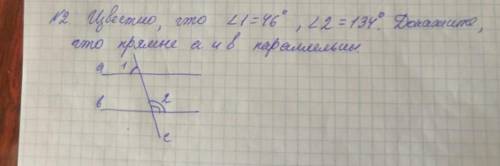 №2 Цвестно, что ∠1=46°, ∠2=134°. Докажите,
что прямые а и в параллельны
а 1
в 2
с